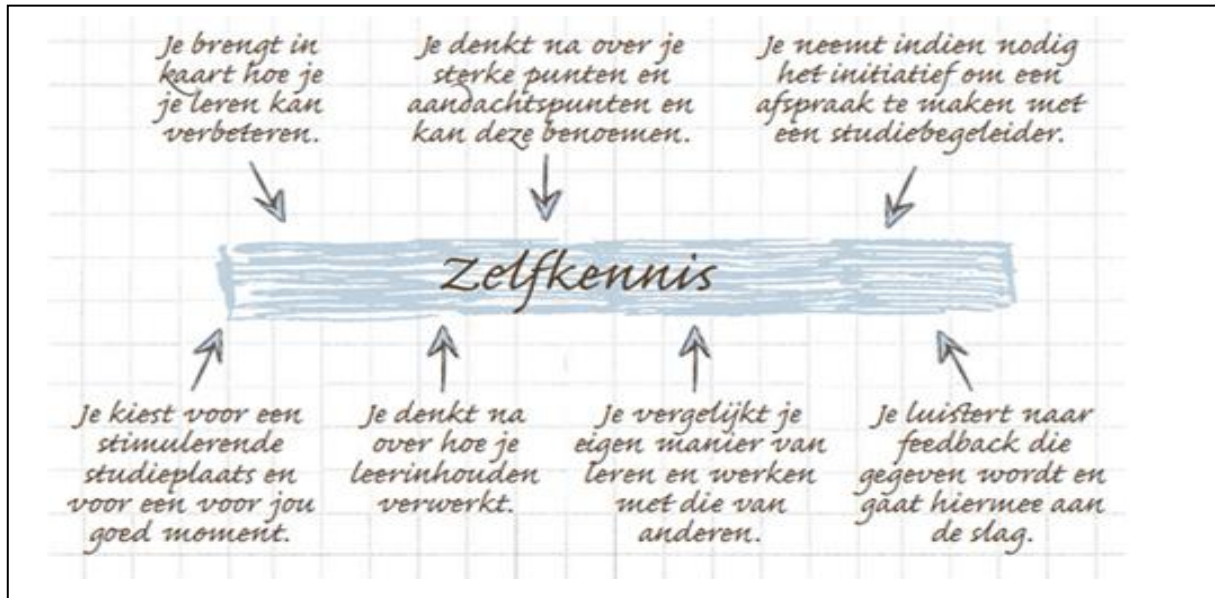 Je brengt in
kaart hoe je
je leren kan
verbeteren.
Je denkt na over je
sterke punten en
aandachtspunten en
kan deze benoemen.
Je neemt indien nodig
het initiatief om een
afspraak te maken met
een studiebegeleider.
Zelfkennis
Je kiest voor een
stimulerende
studieplaats en
voor een voor jou
goed moment.
Je denkt na
over hoe je
leerinhouden
verwerkt.
Je vergelijkt je
eigen manier van
leren en werken
met die van
anderen.
Je luistert naar
feedback die
gegeven wordt en
gaat hiermee aan
de slag.